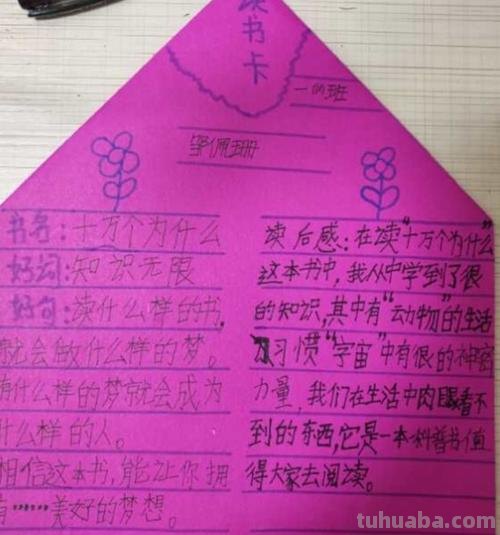 读书卡
一(4)班
佩珊
书名:十万个为什么
好词:知识无限
好句:读什么样的书,
就会做什么样的梦。
有什么样的梦就会成为
什么样的人。
相信这本书,能让你拥
有……美好的梦想。
读后感:在读“十万个为什么”
这本书中,我从中学到了很
的知识,其中有“动物”的生活
习惯“宇宙”中有很的神密
力量,我们在生活中肉眼看不
到的东西,它是一本科普书值
得大家去阅读。
tuhuaba.com